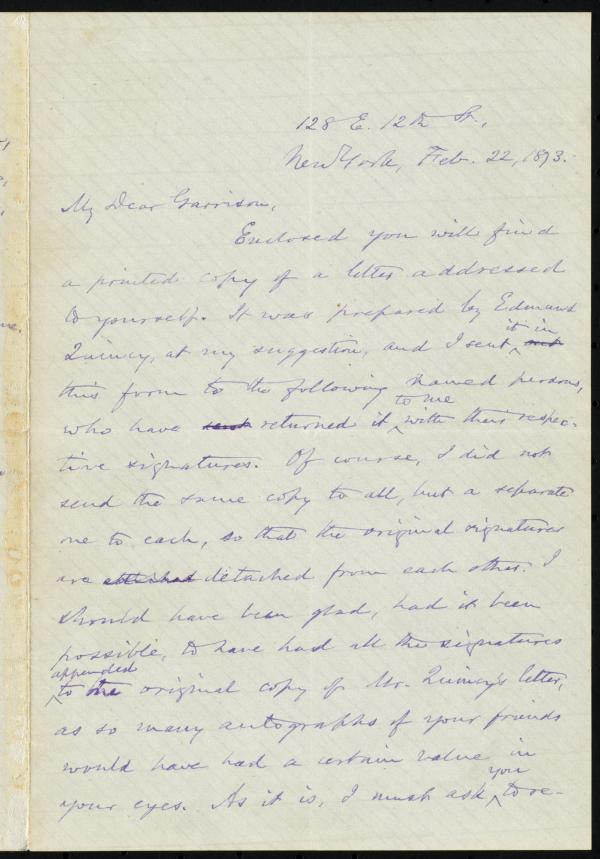 128 E. 12th St.,
New York, Feb. 22, 1873.
My Dear Garrison,
Enclosed you will find
a printed copy of a letter addressed
to yourself. It was prepared by Edmund
Quincy, at my suggestion, and I sent it in
this form to the following named persons,
who have sent returned it to me with their respec-
tive signatures. Of course, I did not
send the same copy to all, but a separate
one to each, so that the original signatures
are attached detached from each other. I
should have been glad, had it been
possible, to have had all the signatures
appended
to the original copy of Mr. Quincy's letter,
as so many autographs of your friends
would have had a certain value in
your eyes. As it is, I must ask you to re-